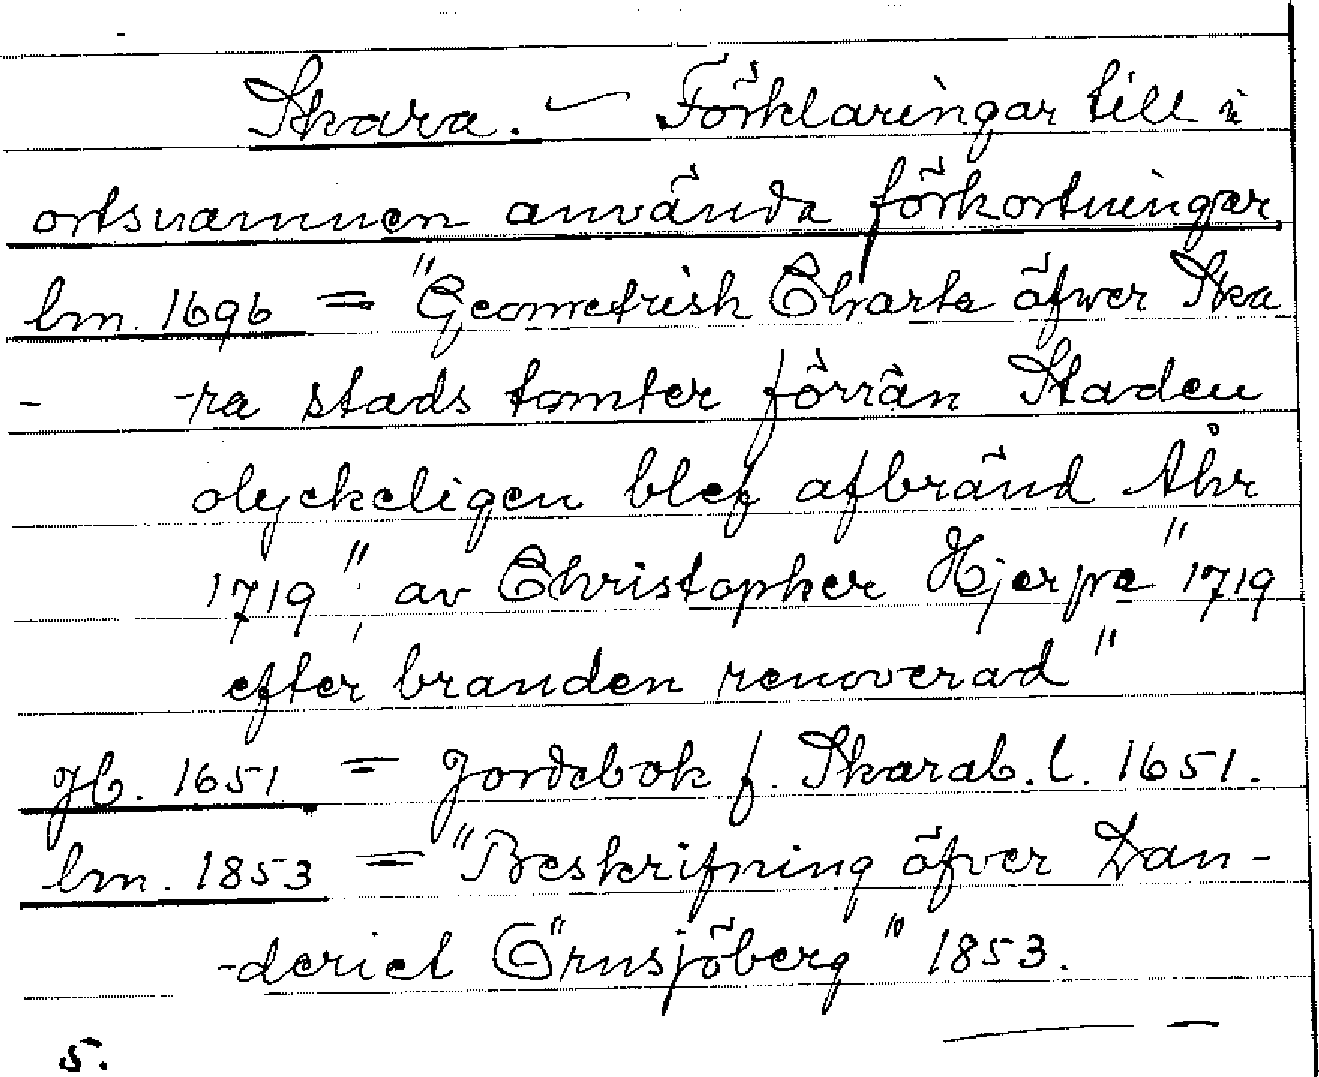 Skara. — Förklaringar till i
ortsnamnen använda förkortningar.
lm. 1696 = "Geometrisk Charta öfwer Ska
- -ra stads tomter förrän Staden
olyckeligen blef afbränd Åhr
1719", av Christopher Hjerpe "1719
efter branden renoverad"
Jb. 1651 = Jordebok f. Skarab. l. 1651.
lm. 1853 = "Beskrifning öfver Dan-
-deriet Örnsjöberg" 1853.
5.